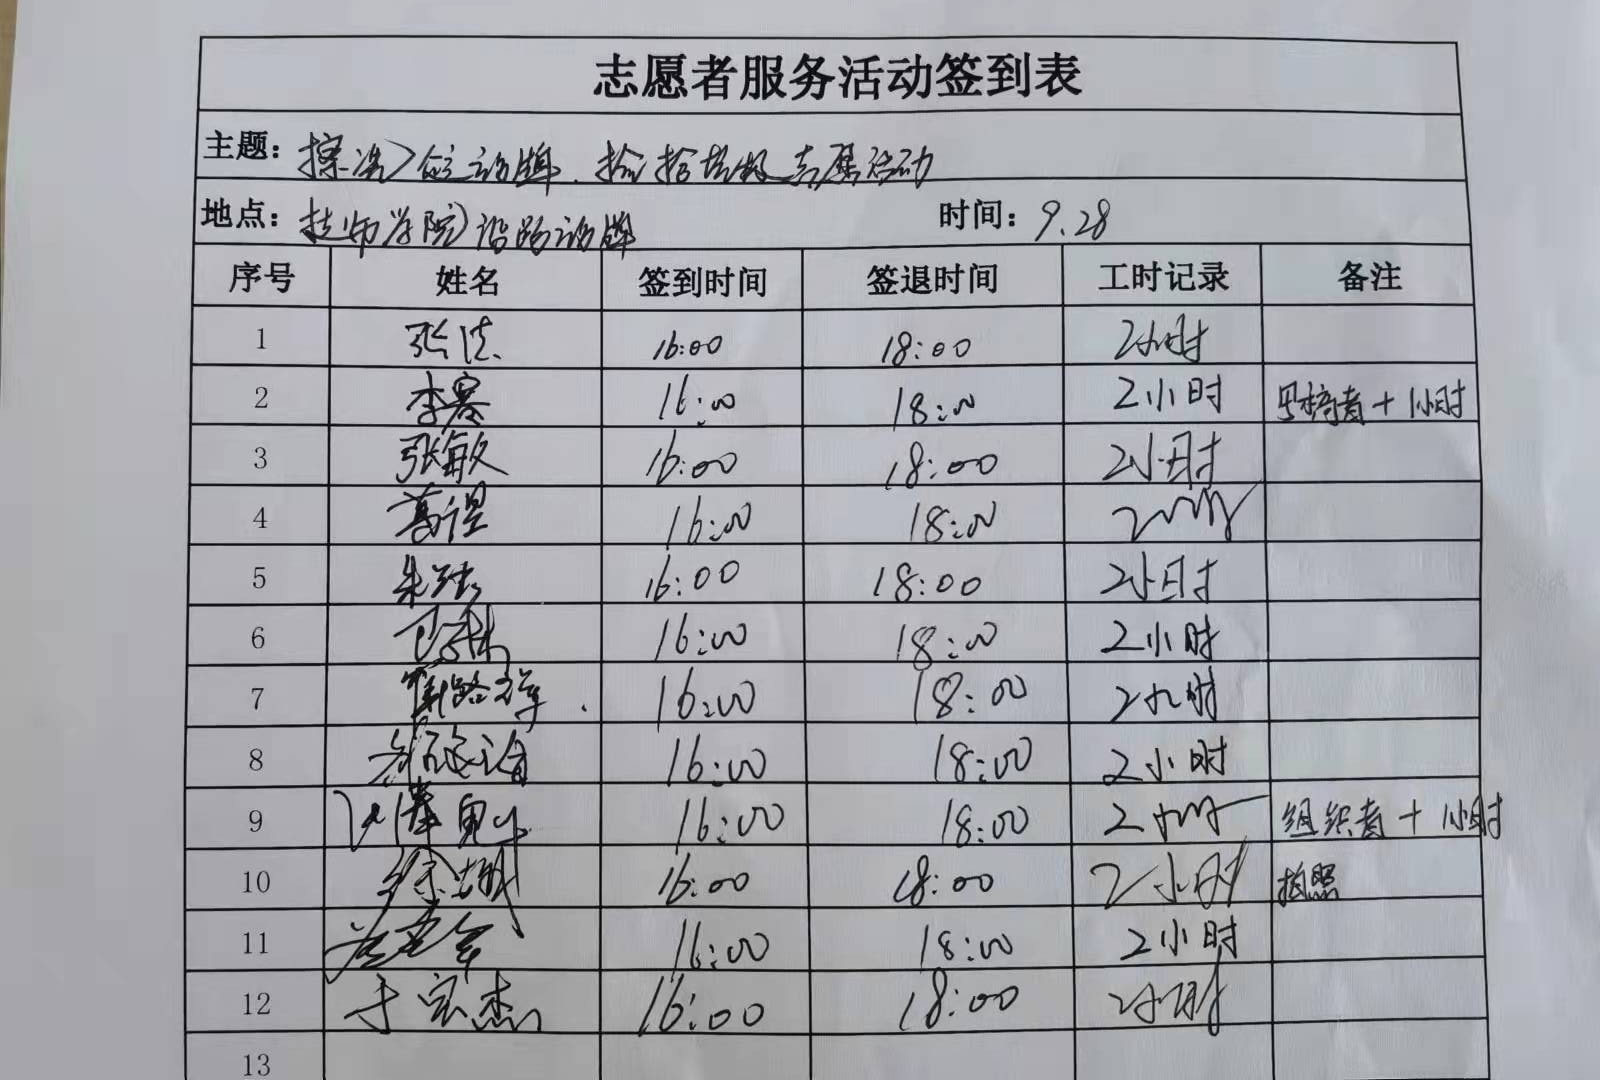 志愿者服务活动签到表
主题: 擦洗 捡拾垃圾志愿活动
地点: 技师学院 沿路 牌 时间: 9.28
序号 姓名 签到时间 签退时间 工时记录 备注
1 张 16:00 18:00 2小时
2 李寒 16:00 18:00 2小时 写稿者+1小时
3 张敏 16:00 18:00 2小时
4 葛 16:00 18:00 2小时
5 朱 16:00 18:00 2小时
6 16:00 18:00 2小时
7 16:00 18:00 2小时
8 16:00 18:00 2小时
9 16:00 18:00 2小时 组织者+1小时
10 徐 16:00 18:00 2小时 拍照
11 16:00 18:00 2小时
12 于宝杰 16:00 18:00 2小时
13